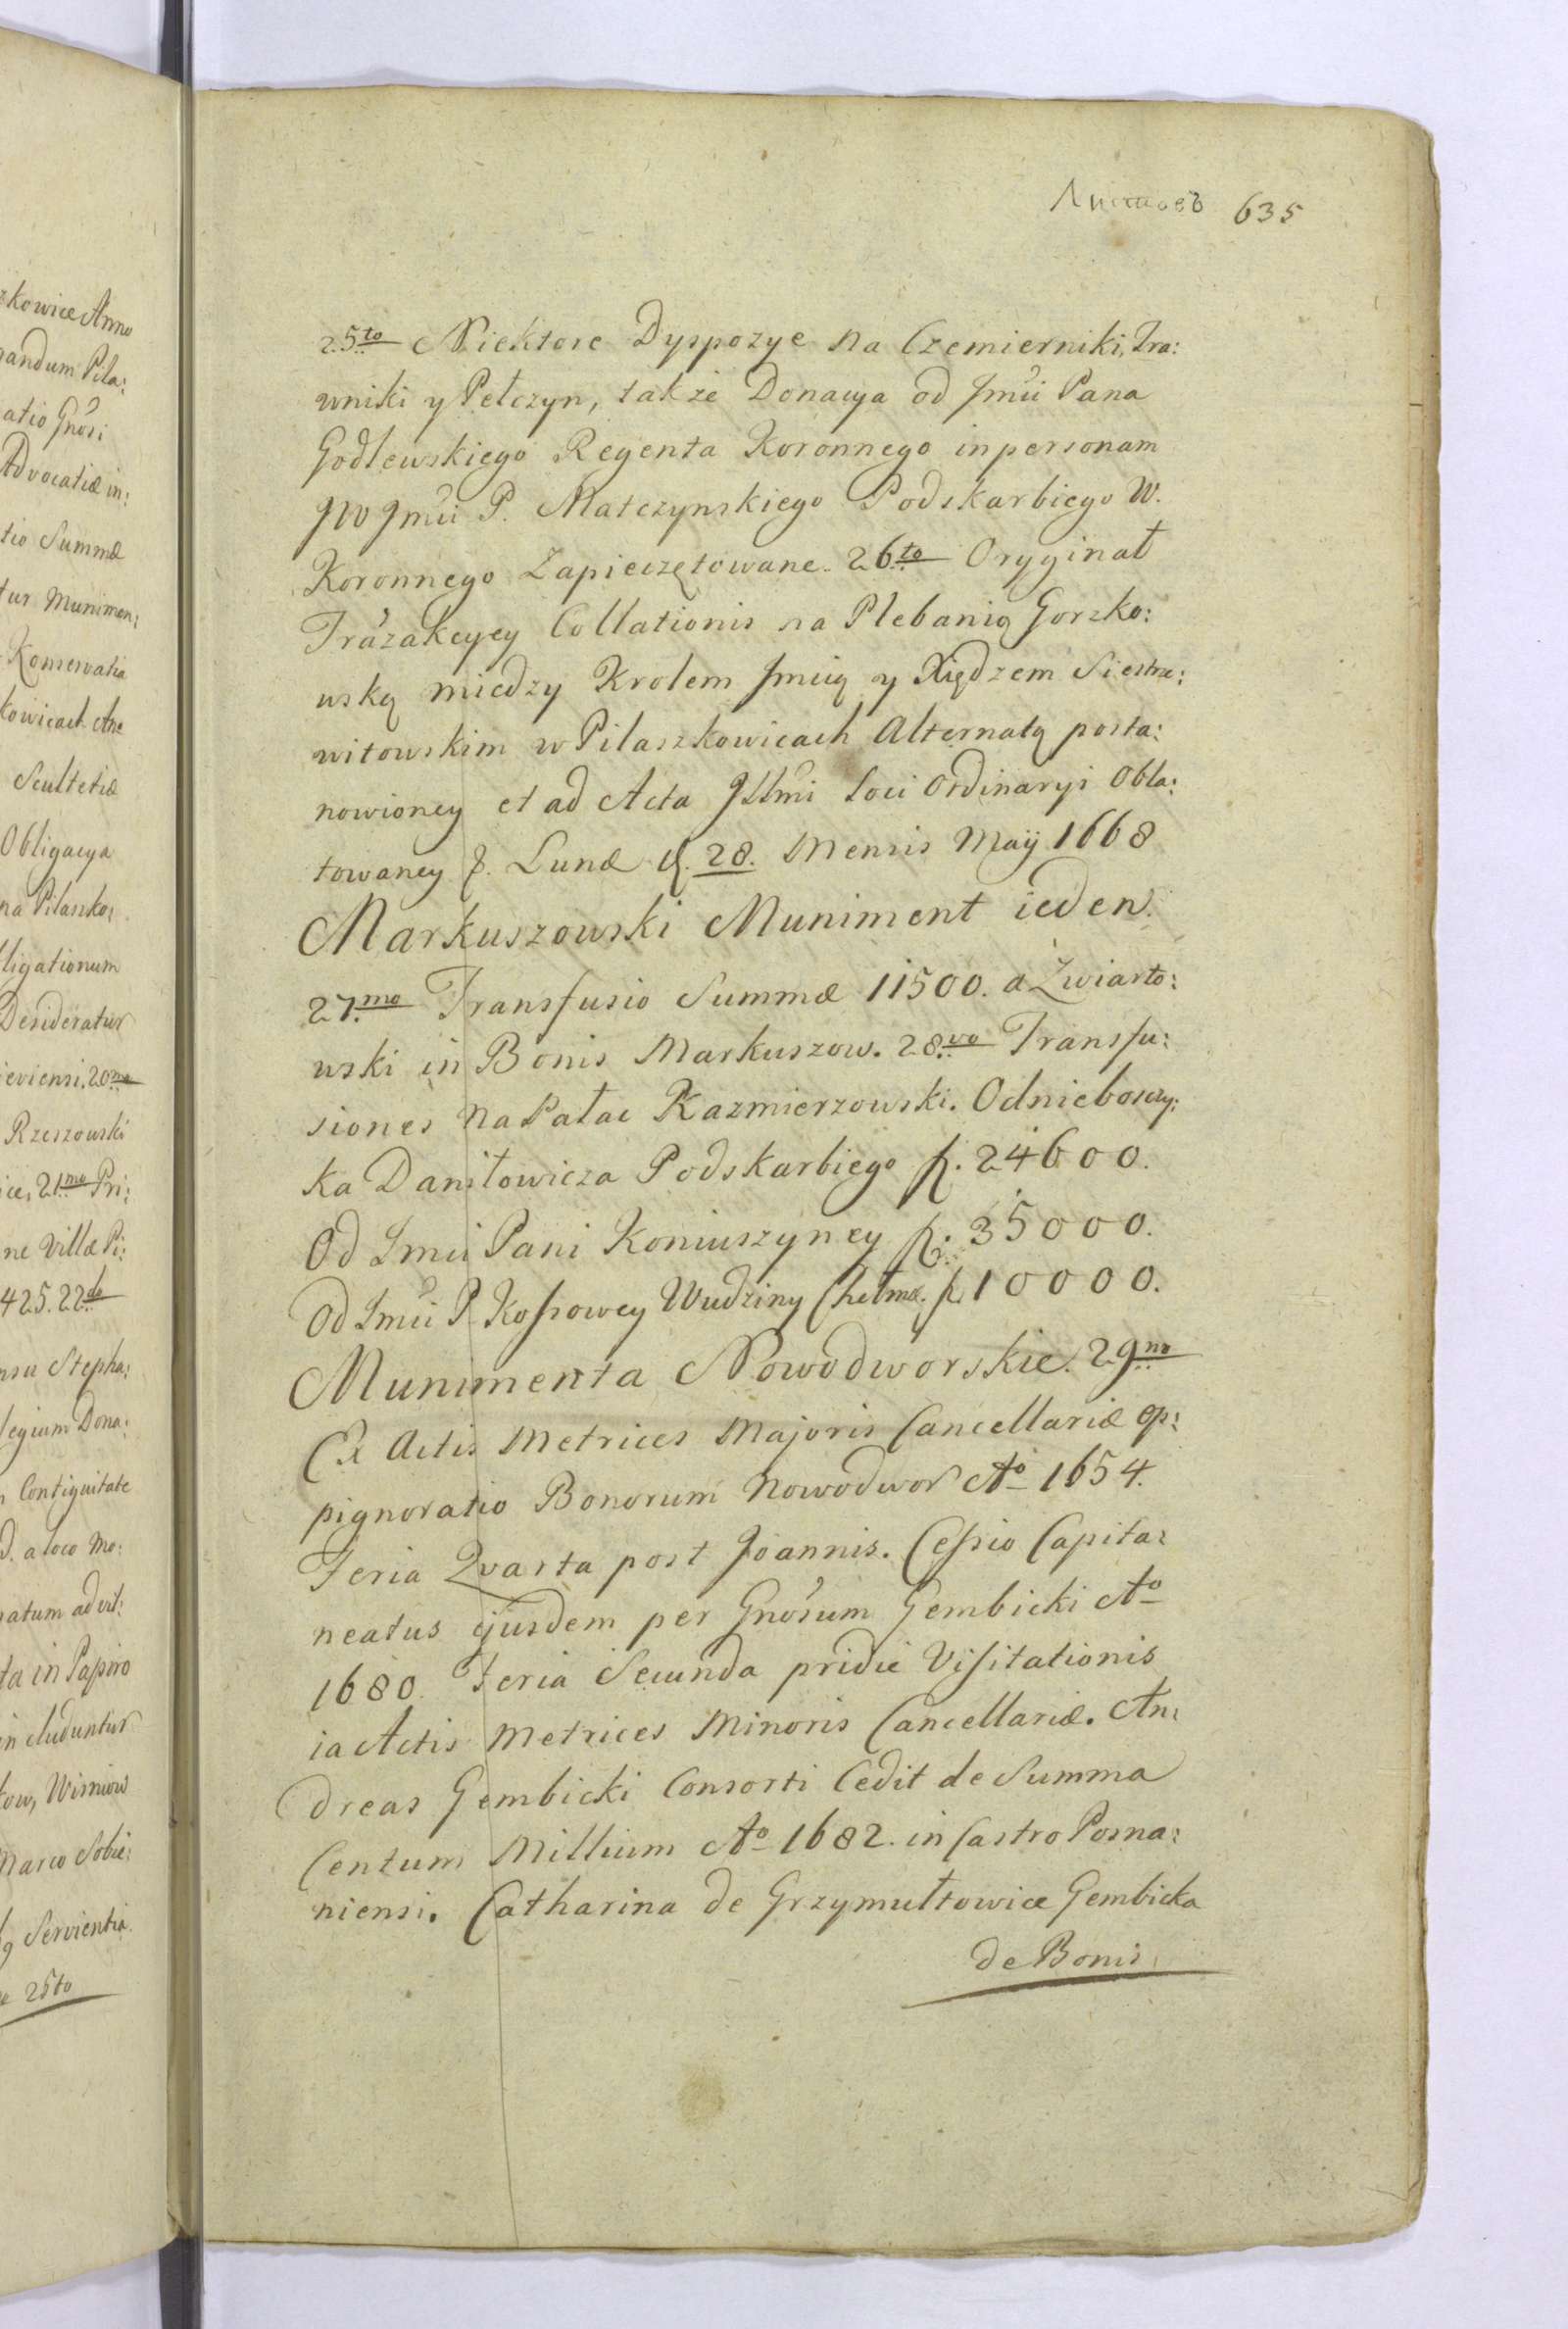 Листовъ 635
25to Niektore Dyspozye na Czemierniki, Tra:
wniki y Pełczyn, także Donacya od Jmći Pana
Godlewskiego Regenta Koronnego in personam
JW Jmći P. Matczynskiego Podskarbiego W.
Koronnego Zapieczętowane. 26to Oryginał
Trázakcyey Collationis na Plebanią Gorzko:
wską miedzy Krolem Jmcią y Xiędzem Siestrze:
witowskim w Pilaszkowicach Alternatą posta:
nowioney et ad Acta Jllmi Loci Ordinaryi Obla:
towaney f. Lunæ d. 28. Mensis Maÿ 1668
Markuszowski Muniment ieden.
27.mo Transfusio Summæ 11500. a Żwiarto:
wski in Bonis Markuszow. 28.vo Transfu:
siones na Pałac Kazmierzowski. Od nieboszczy:
ka Daniłowicza Podskarbiego f. 24600.
Od Jmći Pani Koniuszyney f. 35000.
Od Jmći P. Kossowey Wudziny Chełmæ. f. 10000.
Munimenta Nowodworskie. 29no
Ex Actis Metrices Majoris Cancellariæ op:
pignoratio Bonorum Nowodwor Ao 1654.
Feria Qvarta post Joannis. Cessio Capita:
neatus ejusdem per Gnosum Gembicki Ao
1680. Feria Secunda pridie Visitationis
ia Actis Metrices Minoris Cancellariæ. An:
dreas Gembicki Consorti Cedit de Summa
Centum Millium Ao 1682. in Castro Posna:
niensi. Catharina de Grzymułtowice Gembicka
de Bonis
zkowice Anno
andum Pila:
atio Gnosi
Advocatiæ in:
tio Summæ
tur Munimen:
Konserwatia
kowicach Ane
Scultetiæ
Obligacya
na Pilaszko:
ligationum
Desideratur
ieviensi. 20mo
Rzeszowski
ice, 21mo Pri:
ne Villæ Pi:
425. 22do
nsu Stepha:
legium Dona:
Contiguitate
d. a loco Mo:
natum ad vil:
ta in Papiro
in cluduntur
kow, Wisniow
Marco Sobie:
Servientia
25to